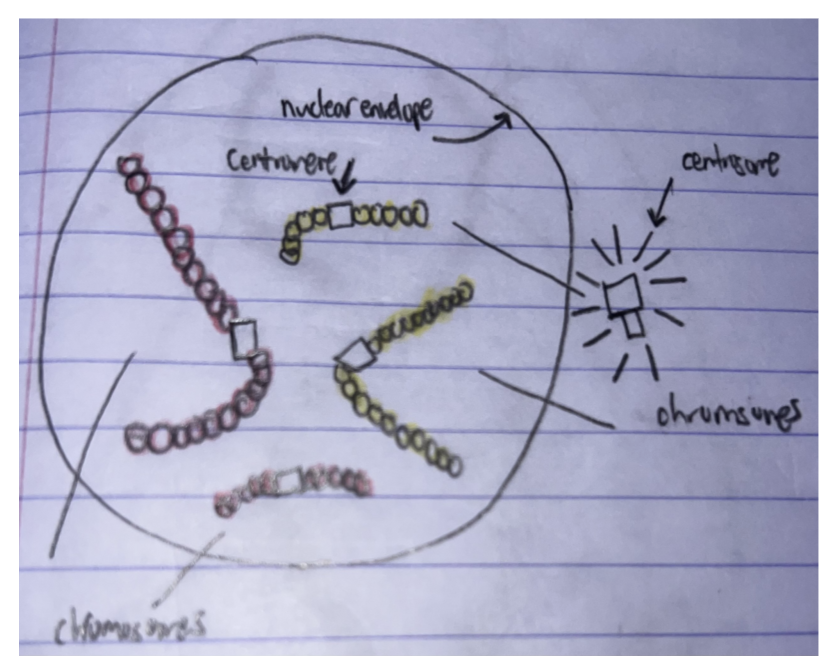 nuclear envelope
centromere
centrosome
chromsomes
chromosomes